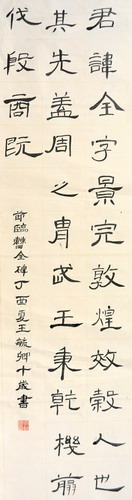 君諱全字景完敦煌效穀人也
其先蓋周之胄武王秉乾機翦
伐殷商既
節臨曹全碑丁酉夏王毓卿十歲書